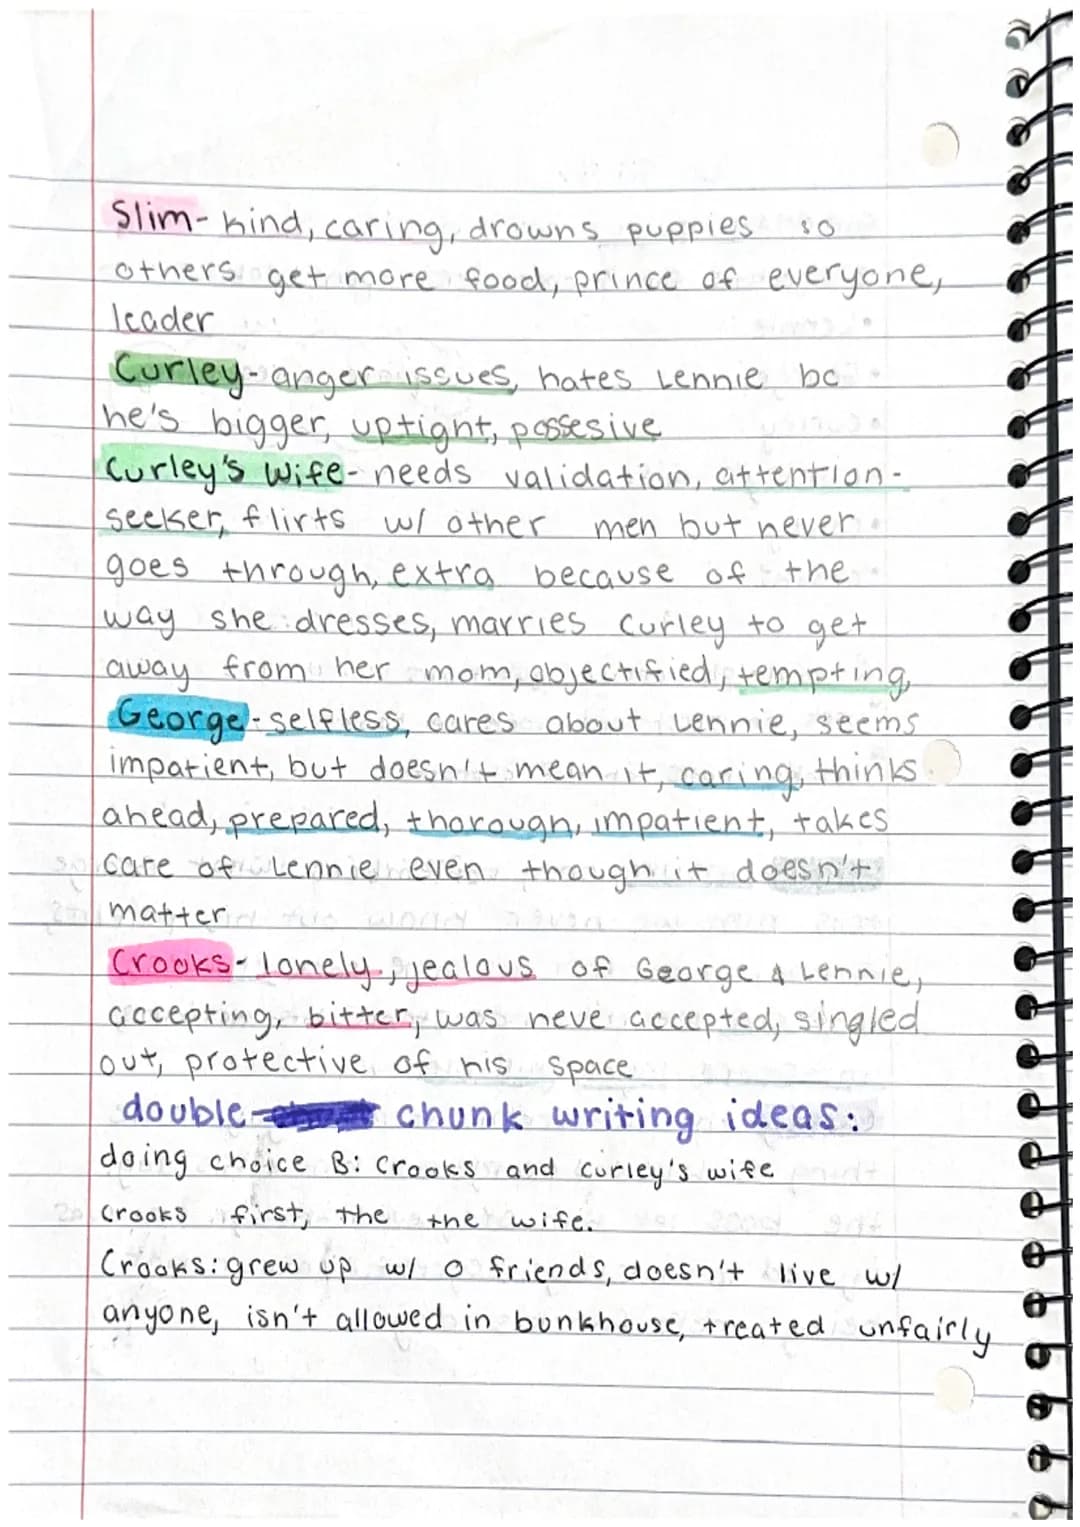 Slim- kind, caring, drowns puppies so
others get more food, prince of everyone,
leader
Curley- anger issues, hates Lennie bc
he's bigger, uptight, possesive
Curley's Wife- needs validation, attention-
seeker, flirts w/ other men but never
goes through, extra because of the
way she dresses, marries Curley to get
away from her mom, objectified, tempting,
George- selfless, cares about Lennie, seems
impatient, but doesn't mean it, caring, thinks
ahead, prepared, thorough, impatient, takes
care of Lennie even though it doesn't
matter
Crooks- lonely, jealous of George & Lennie,
accepting, bitter, was neve accepted, singled
out, protective of his space
double chunk writing ideas:
doing choice B: Crooks and Curley's wife
Crooks first, the the wife.
Crooks: grew up w/ 0 friends, doesn't live w/
anyone, isn't allowed in bunkhouse, treated unfairly